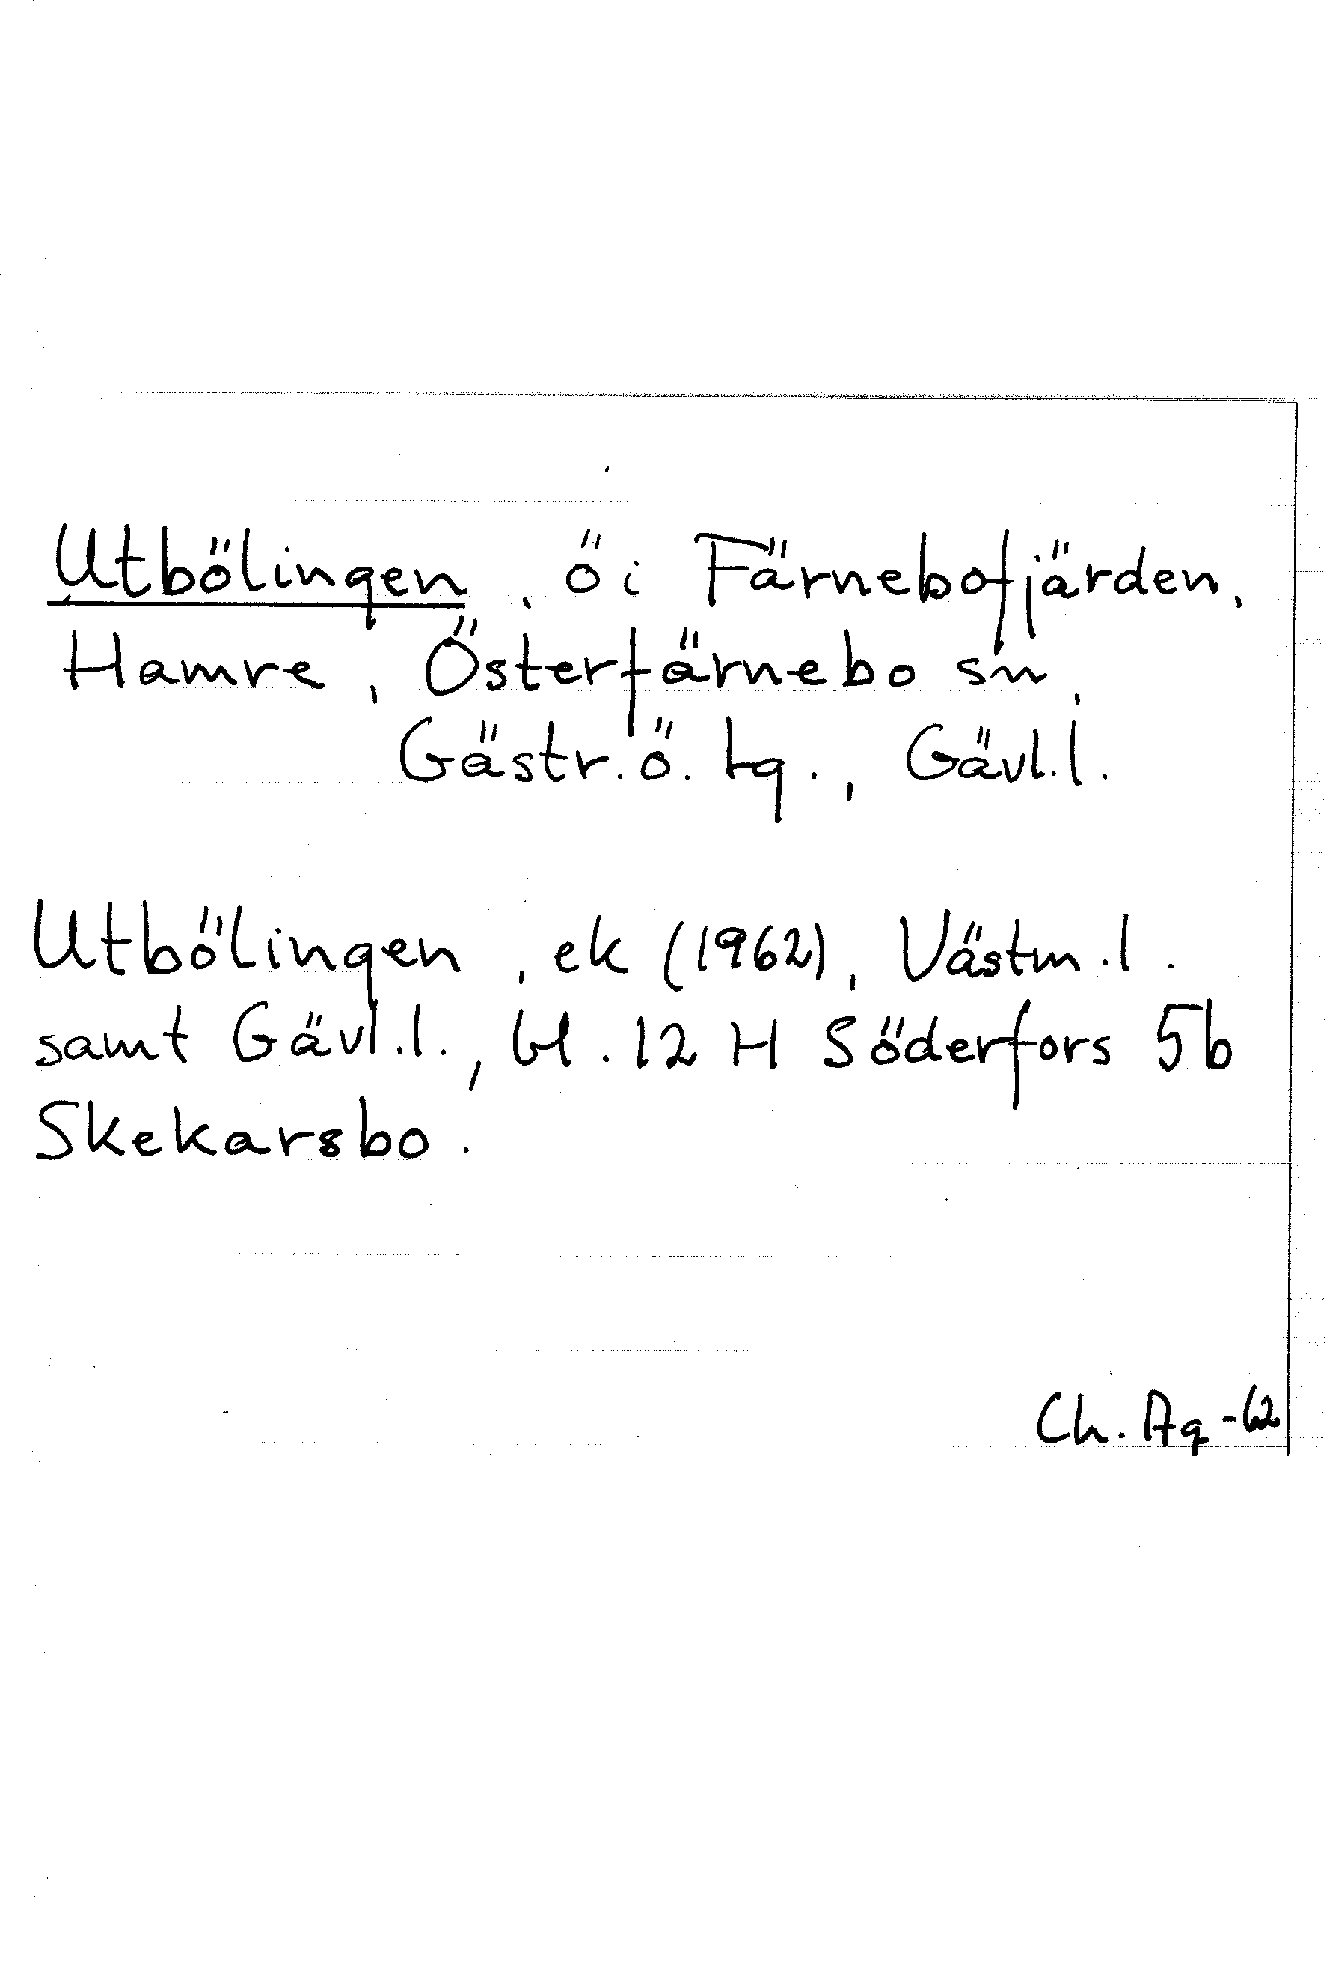 Utbölingen, ö i Färnebofjärden,
Hamre, Österfärnebo sn,
Gästr. ö. tg., Gävl.l.
Utbölingen, ek (1962), Västm.l.
samt Gävl.l., bl. 12 H Söderfors 5b
Skekarsbo.
Ch. Ag -62